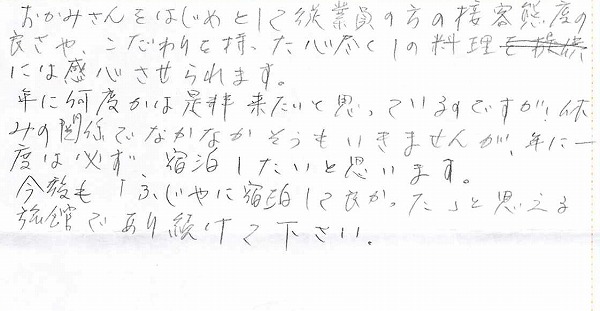 おかみさんをはじめとして従業員の方の接客態度の
良さや、こだわりを持った心尽くしの料理
には感心させられます。
年に何度かは是非来たいと思っているのですが、休
みの関係でなかなかそうもいきませんが、年に一
度は必ず、宿泊したいと思います。
今後も「ふじやに宿泊して良かった」と思える
旅館であり続けて下さい。